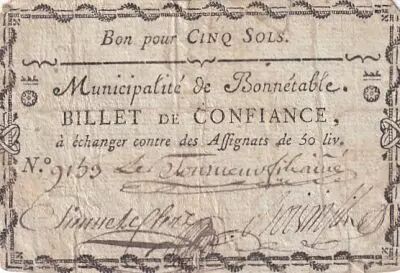 Bon pour CINQ SOLS.
Municipalité de Bonnétable.
BILLET DE CONFIANCE,
à échanger contre des Assignats de 50 liv.
N.° 9153 Le